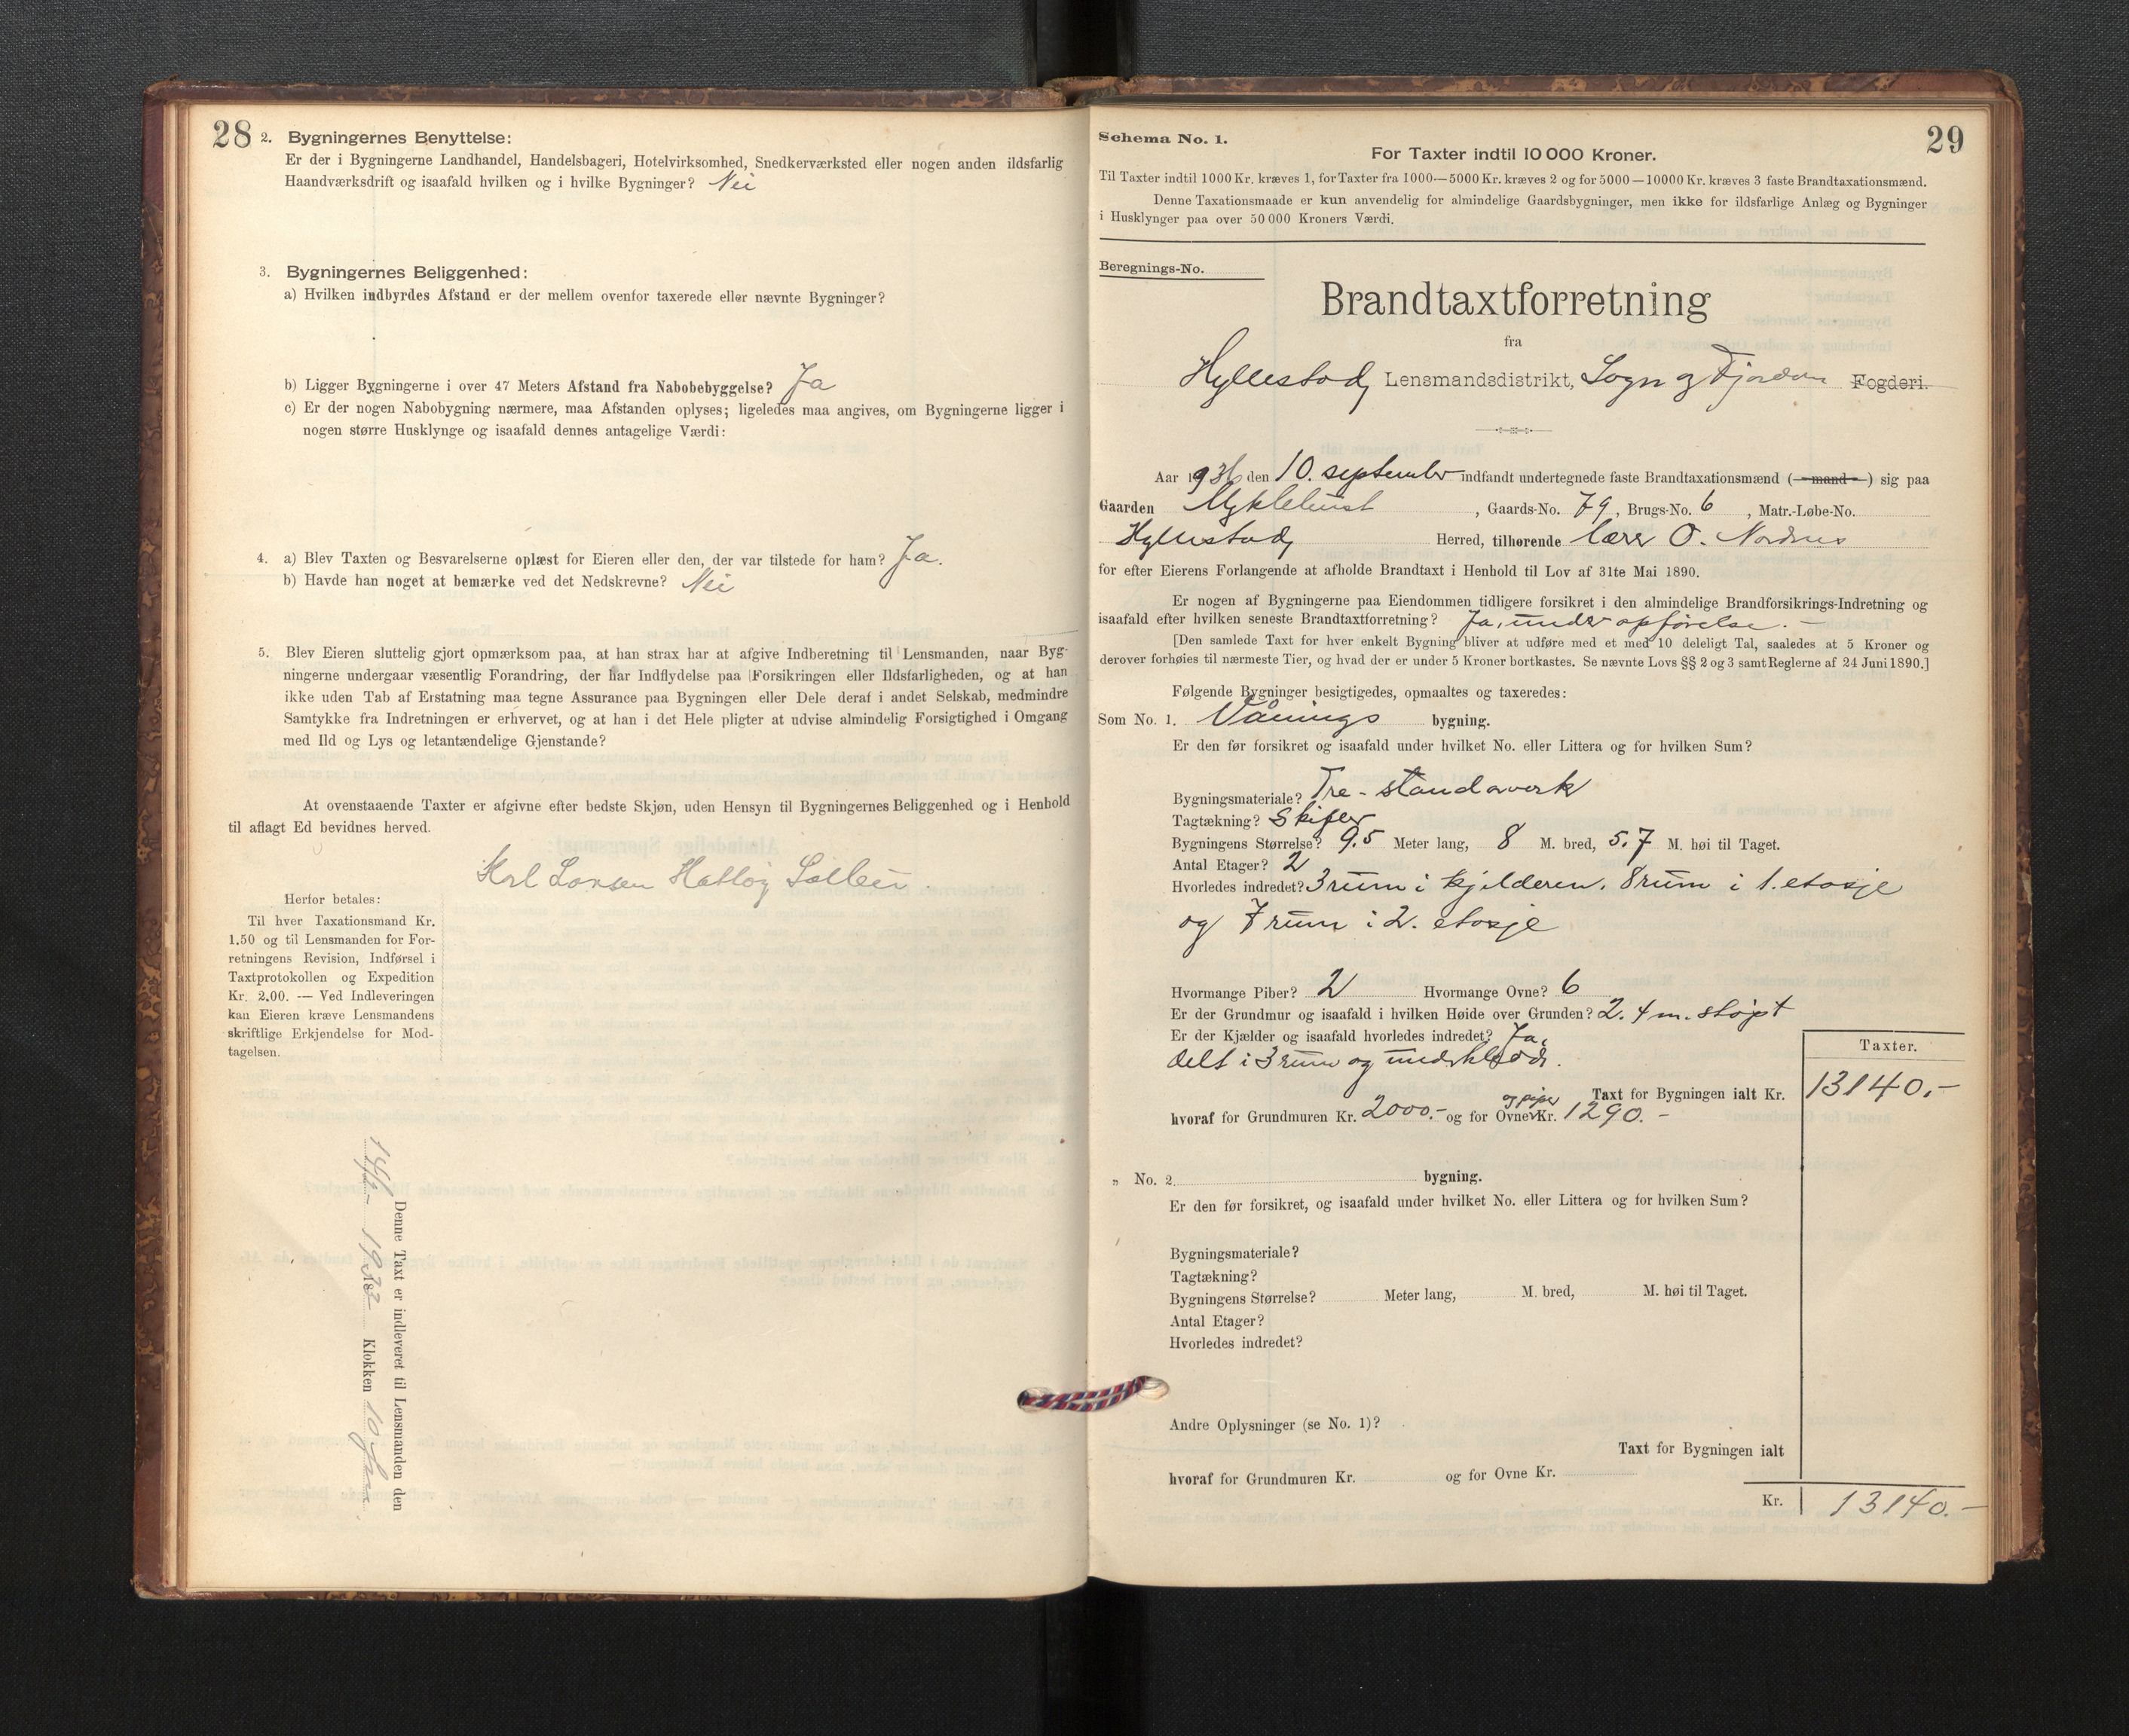 28
2. Bygningernes Benyttelse:
Er der i Bygningerne Landhandel, Handelsbageri, Hotelvirksomhed, Snedkerværksted eller nogen anden ildsfarlig
Haandværksdrift og isaafald hvilken og i hvilke Bygninger? Nei
3. Bygningernes Beliggenhed:
a) Hvilken indbyrdes Afstand er der mellem ovenfor taxerede eller nævnte Bygninger?
b) Ligger Bygningerne i over 47 Meters Afstand fra Nabobebyggelse? Ja
c) Er der nogen Nabobygning nærmere, maa Afstanden oplyses; ligeledes maa angives, om Bygningerne ligger i
nogen større Husklynge og isaafald dennes antagelige Værdi:
4. a) Blev Taxten og Besvarelserne oplæst for Eieren eller den, der var tilstede for ham? Ja.
b) Havde han noget at bemærke ved det Nedskrevne? Nei
5. Blev Eieren sluttelig gjort opmærksom paa, at han strax har at afgive Indberetning til Lensmanden, naar Byg-
ningerne undergaar væsentlig Forandring, der har Indflydelse paa Forsikringen eller Ildsfarligheden, og at han
ikke uden Tab af Erstatning maa tegne Assurance paa Bygningen eller Dele deraf i andet Selskab, medmindre
Samtykke fra Indretningen er erhvervet, og at han i det Hele pligter at udvise almindelig Forsigtighed i Omgang
med Ild og Lys og letantændelige Gjenstande?
At ovenstaaende Taxter er afgivne efter bedste Skjøn, uden Hensyn til Bygningernes Beliggenhed og i Henhold
til aflagt Ed bevidnes herved.
Karl Larsen Hatløy
Herfor betales:
Til hver Taxationsmand Kr.
1.50 og til Lensmanden for For-
retningens Revision, Indførsel i
Taxtprotokollen og Expedition
Kr. 2.00. — Ved Indleveringen
kan Eieren kræve Lensmandens
skriftlige Erkjendelse for Mod-
tagelsen.
Denne Taxt er indleveret til Lensmanden den
Klokken 10
29
Schema No. 1.
For Taxter indtil 10 000 Kroner.
Til Taxter indtil 1000 Kr. kræves 1, for Taxter fra 1000—5000 Kr. kræves 2 og for 5000—10000 Kr. kræves 3 faste Brandtaxationsmænd.
Denne Taxationsmaade er kun anvendelig for almindelige Gaardsbygninger, men ikke for ildsfarlige Anlæg og Bygninger
i Husklynger paa over 50 000 Kroners Værdi.
Beregnings-No.
Brandtaxtforretning
fra
Hyllestad Lensmandsdistrikt, Sogn og Fjordane Fogderi.
Aar 1936 den 10. september indfandt undertegnede faste Brandtaxationsmænd (—mand—) sig paa
Gaarden Myklebust, Gaards-No. 79, Brugs-No. 6, Matr.-Løbe-No.
Hyllestad Herred, tilhørende lærer O. Nordnes
for efter Eierens Forlangende at afholde Brandtaxt i Henhold til Lov af 31te Mai 1890.
Er nogen af Bygningerne paa Eiendommen tidligere forsikret i den almindelige Brandforsikrings-Indretning og
isaafald efter hvilken seneste Brandtaxtforretning? Ja, under opførelse. —
[Den samlede Taxt for hver enkelt Bygning bliver at udføre med et med 10 deleligt Tal, saaledes at 5 Kroner og
derover forhøies til nærmeste Tier, og hvad der er under 5 Kroner bortkastes. Se nævnte Lovs §§ 2 og 3 samt Reglerne af 24 Juni 1890.]
Følgende Bygninger besigtigedes, opmaaltes og taxeredes:
Som No. 1. Vånings bygning.
Er den før forsikret og isaafald under hvilket No. eller Littera og for hvilken Sum?
Bygningsmateriale? Tre-standaverk
Tagtækning? Skifer
Bygningens Størrelse? 9.5 Meter lang, 8 M. bred, 5.7 M. høi til Taget.
Antal Etager? 2
Hvorledes indredet? 3 rum i kjelderen. 8 rum i 1. etasje
og 7 rum i 2. etasje
Hvormange Piber? 2 Hvormange Ovne? 6
Er der Grundmur og isaafald i hvilken Høide over Grunden? 2.4 m. støpt
Er der Kjælder og isaafald hvorledes indredet? Ja,
delt i 3 rum og
Taxter.
Taxt for Bygningen ialt Kr. 13140.-
hvoraf for Grundmuren Kr. 2000.- og for Ovne og piper Kr. 1290.-
„ No. 2 bygning.
Er den før forsikret, og isaafald under hvilket No. eller Littera og for hvilken Sum?
Bygningsmateriale?
Tagtækning?
Bygningens Størrelse? Meter lang, M. bred, M. høi til Taget.
Antal Etager?
Hvorledes indredet?
Andre Oplysninger (se No. 1)?
Taxt for Bygningen ialt
hvoraf for Grundmuren Kr. og for Ovne Kr.
Kr. 13140.-